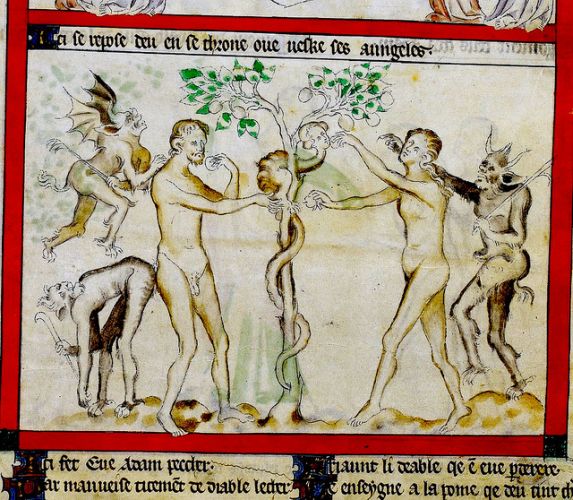 Ici se repose deu en se throne oue ueske ses aungeles.
Ici fet Eue Adam peccher.
Par mauueise ticemēt de diable lecher
li deable qe ē eue
E enseygne a la pome qe deu tint